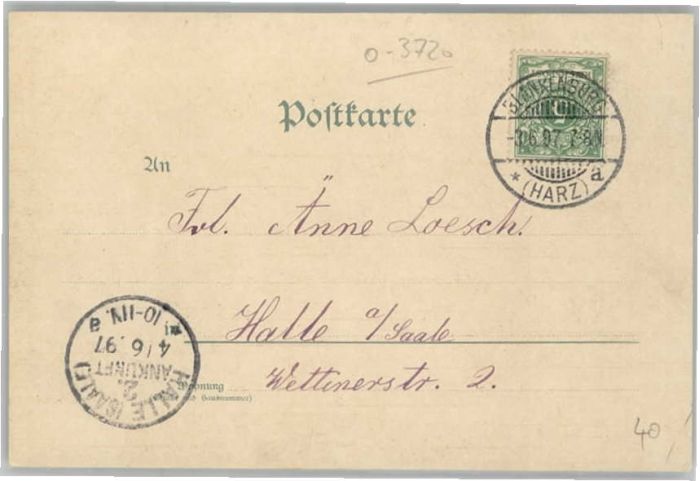 0-3720
Poſtkarte
BLANKENBURG
6.97 7-8N
* (HARZ) a
An
Frl. Änne Loesch.
Halle a/Saale
Wettinerstr. 2.
Wohnung
HALLE (SAALE)
2.
ANKUNFT
4/6.97
10-11V. a
40